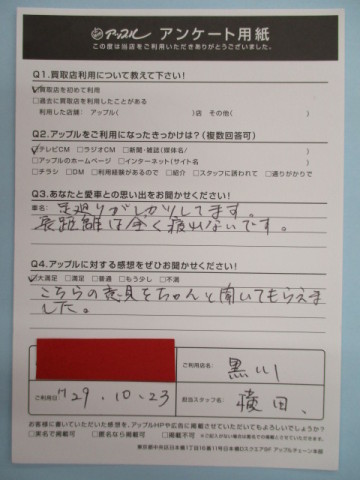 アップル アンケート用紙
この度は当店をご利用いただきありがとうございました。
Q1.買取店利用について教えて下さい!
買取店を初めて利用
□過去に買取店を利用したことがある
利用した店舗: アップル( )店 その他( )
Q2.アップルをご利用になったきっかけは?(複数回答可)
テレビCM □ラジオCM □新聞・雑誌(媒体名/ )
□アップルのホームページ □インターネット(サイト名 )
□チラシ □DM □利用経験があるので □紹介 □スタッフに誘われて □通りがかりで
Q3.あなたと愛車との思い出をお聞かせください!
車名: 足廻りがしっかりしてます。
長距離は全く疲れないです。
Q4.アップルに対する感想をぜひお聞かせください!
大満足 □満足 □普通 □もう少し □不満
こちらの意見をちゃんと聞いてもらえま
した。
ご利用店名: 黒川
ご利用日 29.10.23
担当スタッフ名:
お客様に書いていただいた感想を、アップルHPや広告に掲載させていただいてもよろしいでしょうか?
□実名で掲載可 □匿名なら掲載可 □掲載不可 ※ご記入がない場合は匿名での掲載とさせていただきます。
東京都中央区日本橋1丁目16番11号日本橋Dスクエア8F アップルチェーン本部